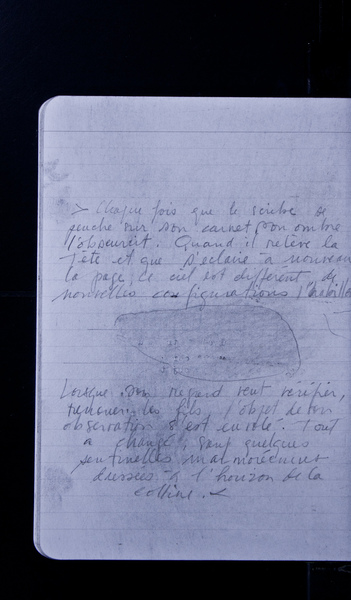 > Chaque fois que le scribe se
penche sur son carnet son ombre
l'obscurcit. Quand il relève la
tête et que s'éclaire à nouveau
la page, ce ciel est différent, de
nouvelles configurations l'habillent
Lorsque son regard veut vérifier,
renouer les fils, l'objet de son
observation s'est envolé. Tout
a changé, sauf quelques
sentinelles malmorément
dressées à l'horizon de la
colline. <